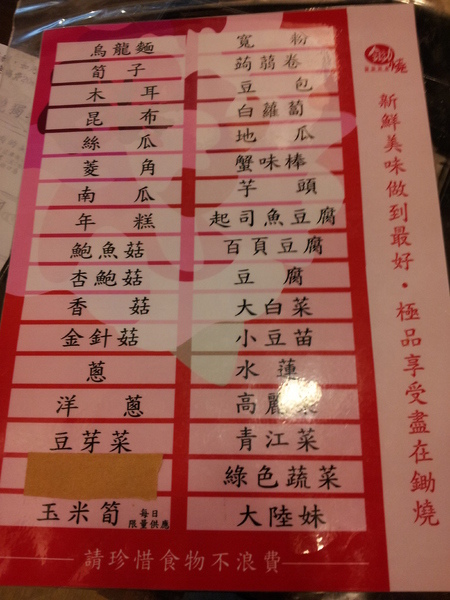 烏龍麵
筍子
木耳
昆布
絲瓜
菱角
南瓜
年糕
鮑魚菇
杏鮑菇
香菇
金針菇
蔥
洋蔥
豆芽菜
玉米筍 每日限量供應
寬粉
蒟蒻卷
豆包
白蘿蔔
地瓜
蟹味棒
芋頭
起司魚豆腐
百頁豆腐
豆腐
大白菜
小豆苗
水蓮
高麗菜
青江菜
綠色蔬菜
大陸妹
請珍惜食物不浪費
新鮮美味做到最好・極品享受盡在鋤燒